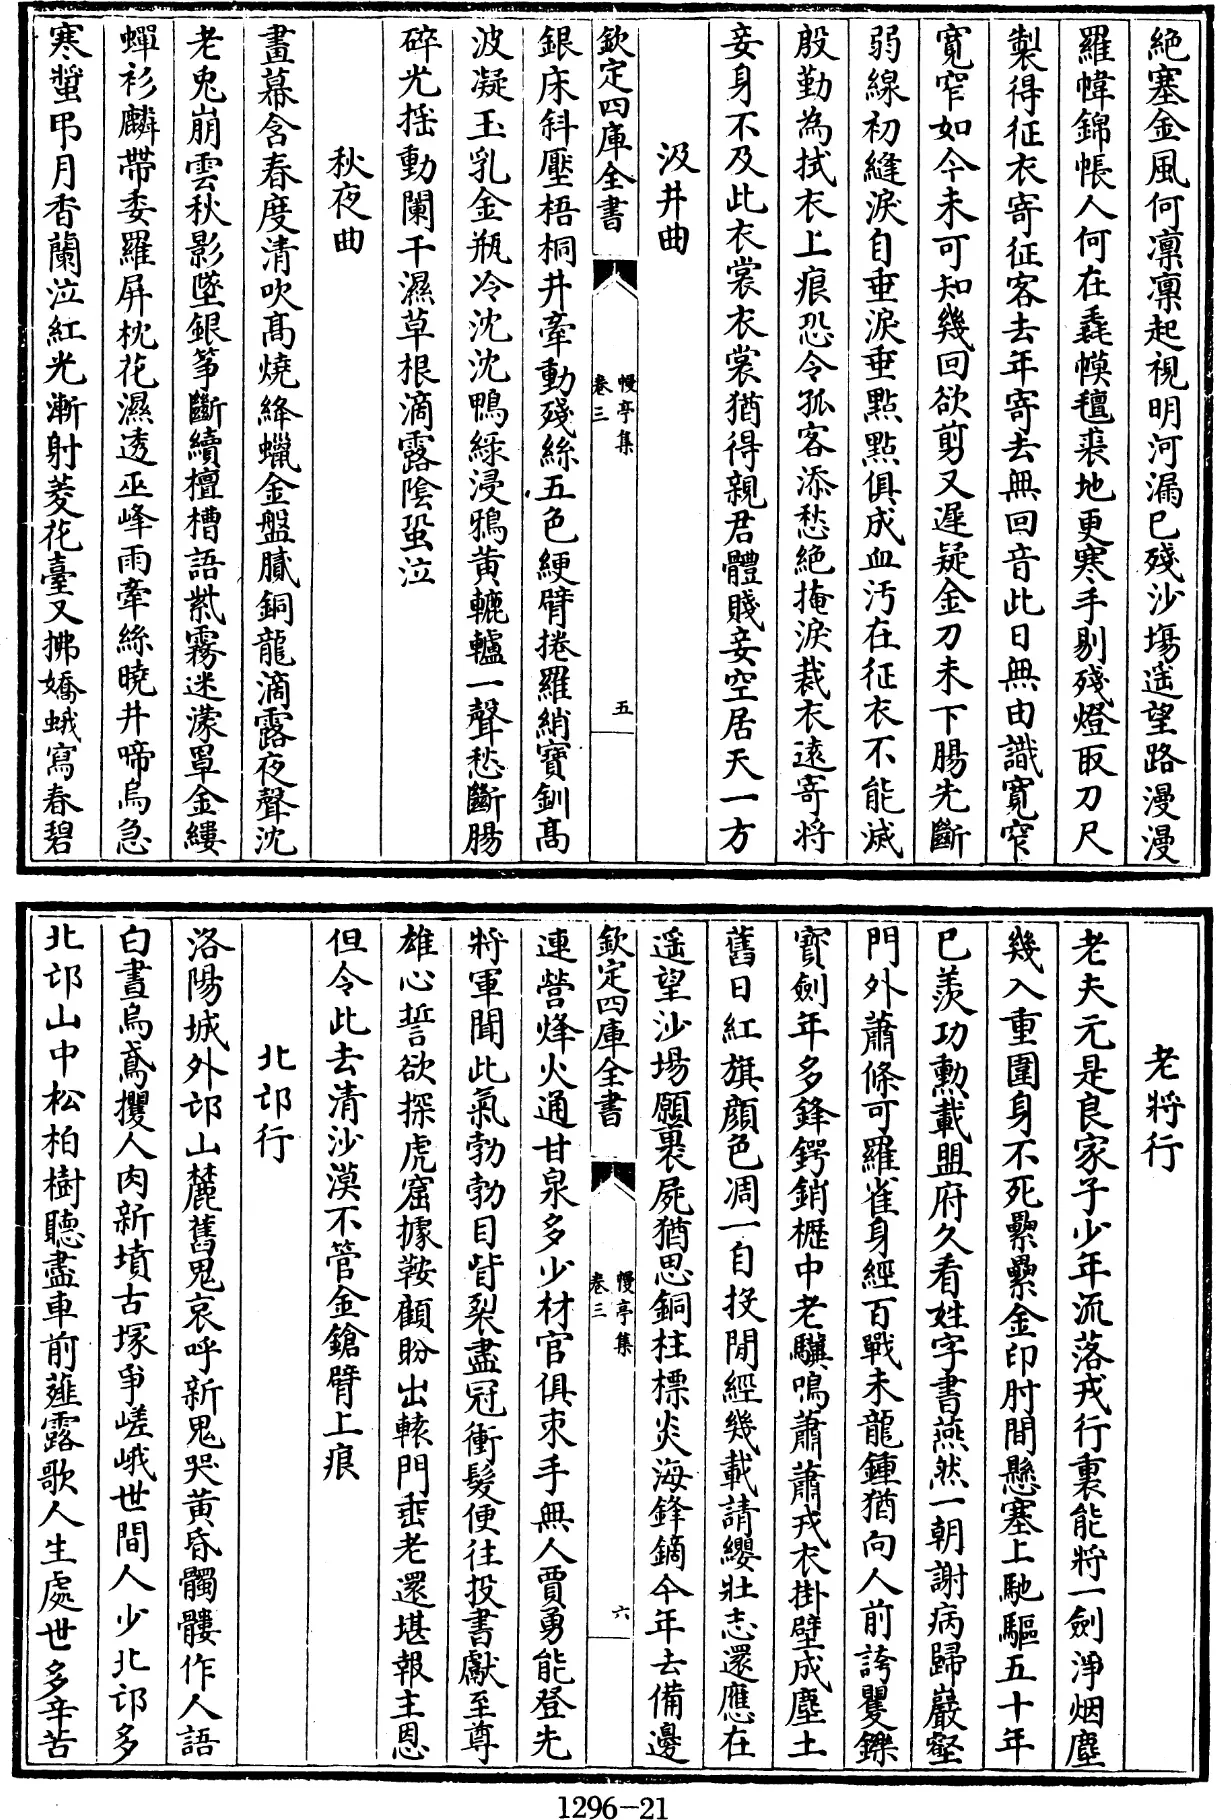 絶塞金風何凛凛起視明河漏已殘沙塲遥望路漫漫
羅幃錦帳人何在毳幙氊裘地更寒手剔殘燈取刀尺
製得征衣寄征客去年寄去無回音此日無由識寛窄
寛窄如今未可知幾回欲剪又遲疑金刀未下腸先斷
弱線初縫淚自垂淚垂點點俱成血汚在征衣不能滅
殷勤為拭衣上痕恐令孤客添愁絶掩淚裁衣遠寄將
妾身不及此衣裳衣裳猶得親君體賤妾空居天一方
汲井曲
欽定四庫全書
幔亭集
卷三
五
銀床斜壓梧桐井牽動殘絲五色綆臂捲羅綃寶釧髙
波凝玉乳金瓶冷沈沈鴨緑浸鴉黄轆轤一聲愁斷腸
碎光揺動闌干濕草根滴露陰蛩泣
秋夜曲
畫幕含春度清吹髙燒絳蠟金盤膩銅龍滴露夜聲沈
老兎崩雲秋影墜銀筝斷續檀槽語紫霧迷濛罩金縷
蟬衫麟帶委羅屏枕花濕透巫峰雨牽絲曉井啼烏急
寒螿弔月香蘭泣紅光漸射菱花臺又拂嬌蛾寫春碧
老將行
老夫元是良家子少年流落戎行裏能將一劍淨烟塵
幾入重圍身不死纍纍金印肘間懸塞上馳驅五十年
已羨功勲載盟府久看姓字書燕然一朝謝病歸巖壑
門外蕭條可羅雀身經百戰未龍鍾猶向人前誇矍鑠
寳劍年多鋒鍔銷櫪中老驥鳴蕭蕭戎衣掛壁成塵土
舊日紅旗顔色凋一自投閒經幾載請纓壯志還應在
遥望沙場願裹屍猶思銅柱標炎海鋒鏑今年去備邊
欽定四庫全書
幔亭集
卷三
六
連營烽火通甘泉多少材官俱束手無人賈勇能登先
將軍聞此氣勃勃目眥裂盡冠衝髮便往投書獻至尊
雄心誓欲探虎窟據鞍顧盼出轅門垂老還堪報主恩
但令此去清沙漠不管金鎗臂上痕
北邙行
洛陽城外邙山麓舊鬼哀呼新鬼哭黄昏髑髏作人語
白晝烏鳶攫人肉新墳古塚爭嵯峨世間人少北邙多
北邙山中松柏樹聽盡車前薤露歌人生處世多辛苦
1296-21